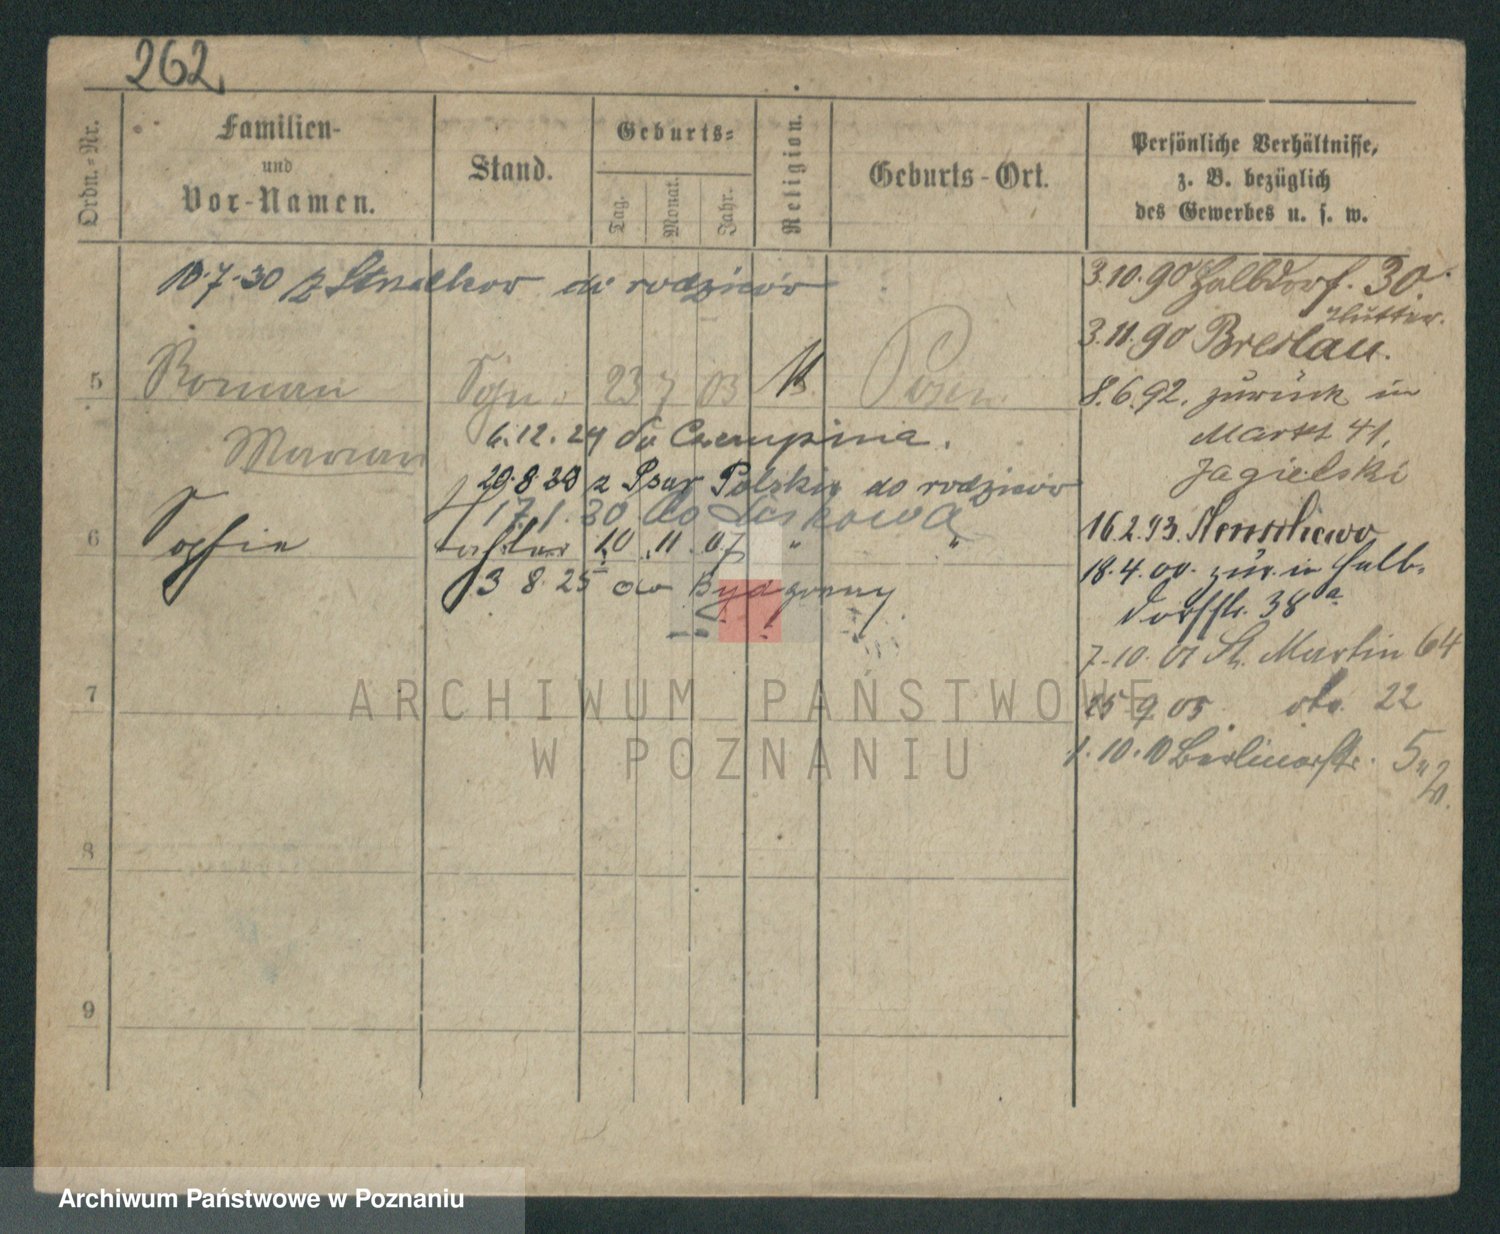 262
Ordn.-Nr.
Familien-
und
Vor-Namen.
Stand.
Geburts-
Tag.
Monat.
Jahr.
Religion.
Geburts-Ort.
Persönliche Verhältnisse,
z. B. bezüglich
des Gewerbes u. s. w.
7.30 z do rodziców
5 Roman 23 7 03 Posen
Marian
6.12.24 do Czempinia.
29.8.28 z Psar Polskich do rodziców
17.1.30 do
6 Sophie Tochter 10 11 07 " "
3 8.25 do Bydgoszczy
7
8
9
3.10.90 Halbdorf. 30.
Mutter.
3.11.90 Breslau.
8.6.92. zurück in
Markt 41,
Jagielski
16.2.93.
18.4.00. zur. in Halb-
dorfstr. 38a
7.10.01 St. Martin 64
25 9 05. 22
1.10.10 Berlinerstr. 5
ARCHIWUM PAŃSTWOWE
W POZNANIU
Archiwum Państwowe w Poznaniu